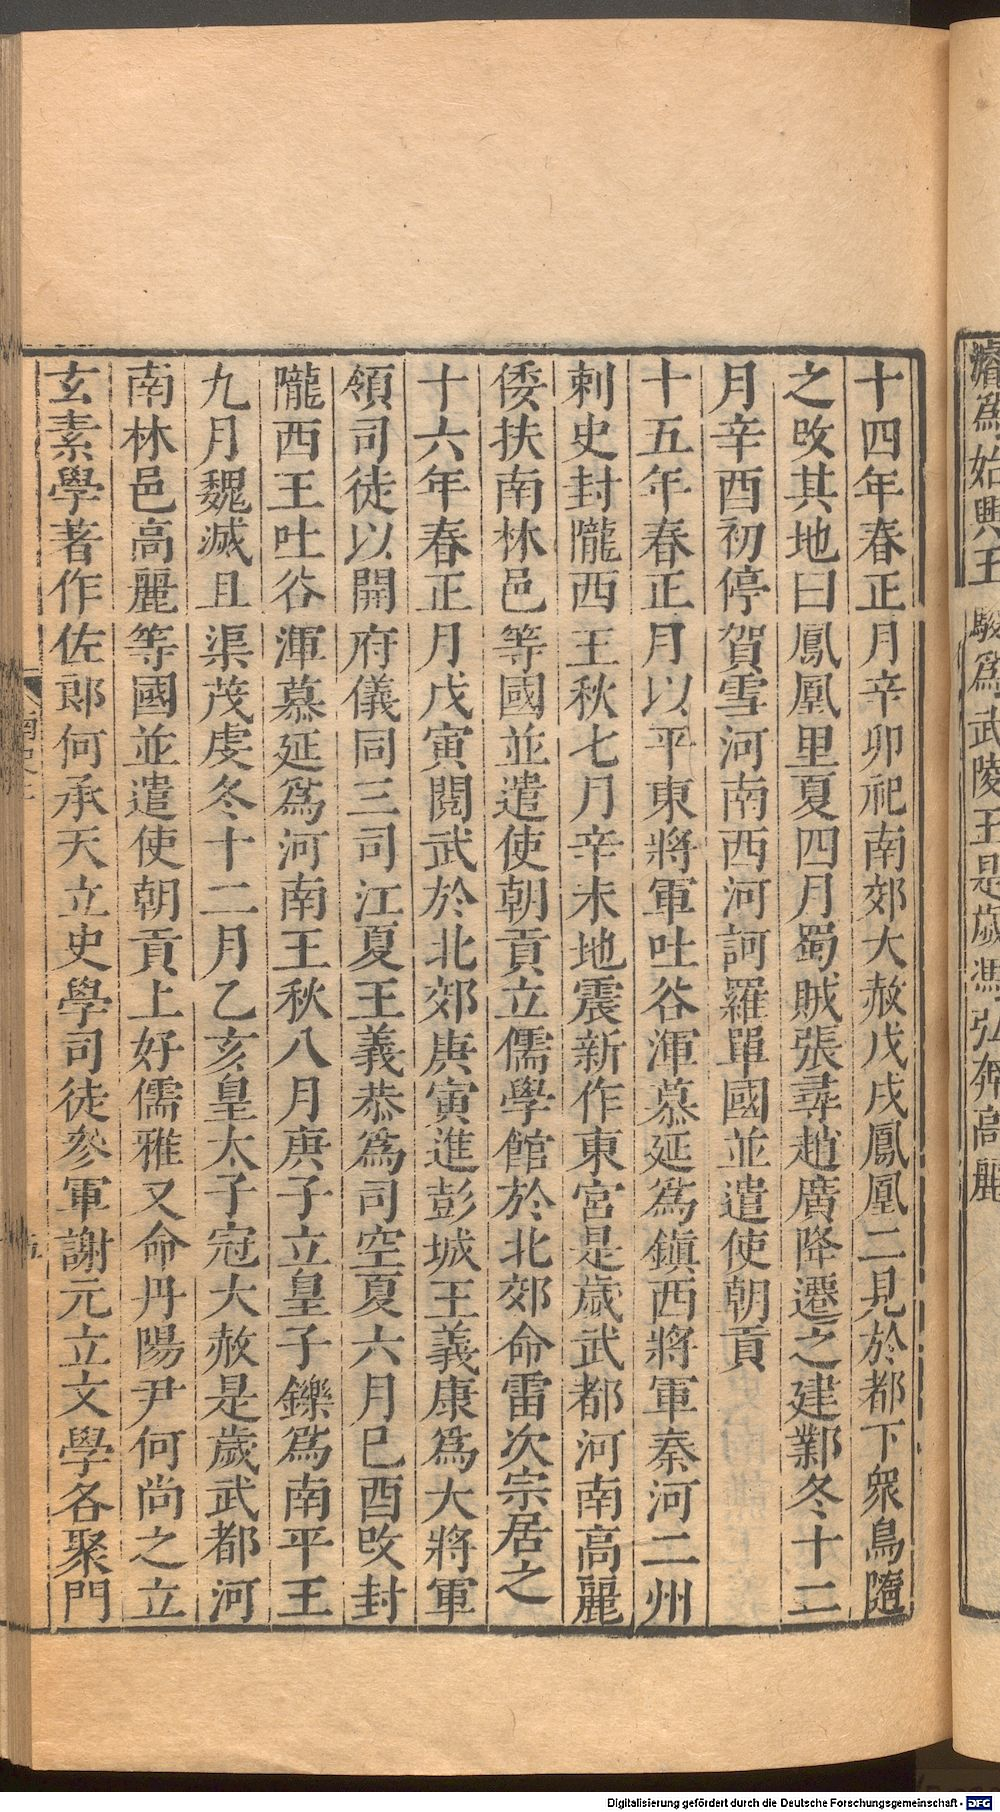 濬爲始興王駿爲武陵王是歲馮弘奔高麗
十四年春正月辛卯祀南郊大赦戊戌鳳凰二見於都下衆鳥隨
之攺其地曰鳳凰里夏四月蜀賊張尋趙廣降遷之建鄴冬十二
月辛酉初停賀雪河南西河訶羅單國並遣使朝貢
十五年春正月以平東將軍吐谷渾慕延爲鎭西將軍秦河二州
刺史封隴西王秋七月辛未地震新作東宮是歲武都河南高麗
倭扶南林邑等國並遣使朝貢立儒學館於北郊命雷次宗居之
十六年春正月戊寅閱武於北郊庚寅進彭城王義康爲大將軍
領司徒以開府儀同三司江夏王義恭爲司空夏六月巳酉攺封
隴西王吐谷渾慕延爲河南王秋八月庚子立皇子鑠爲南平王
九月魏滅且渠茂虔冬十二月乙亥皇太子冠大赦是歲武都河
南林邑高麗等國並遣使朝貢上好儒雅又命丹陽尹何尚之立
玄素學著作佐郎何承天立史學司徒參軍謝元立文學各聚門
Digitalisierung gefördert durch die Deutsche Forschungsgemeinschaft - DFG